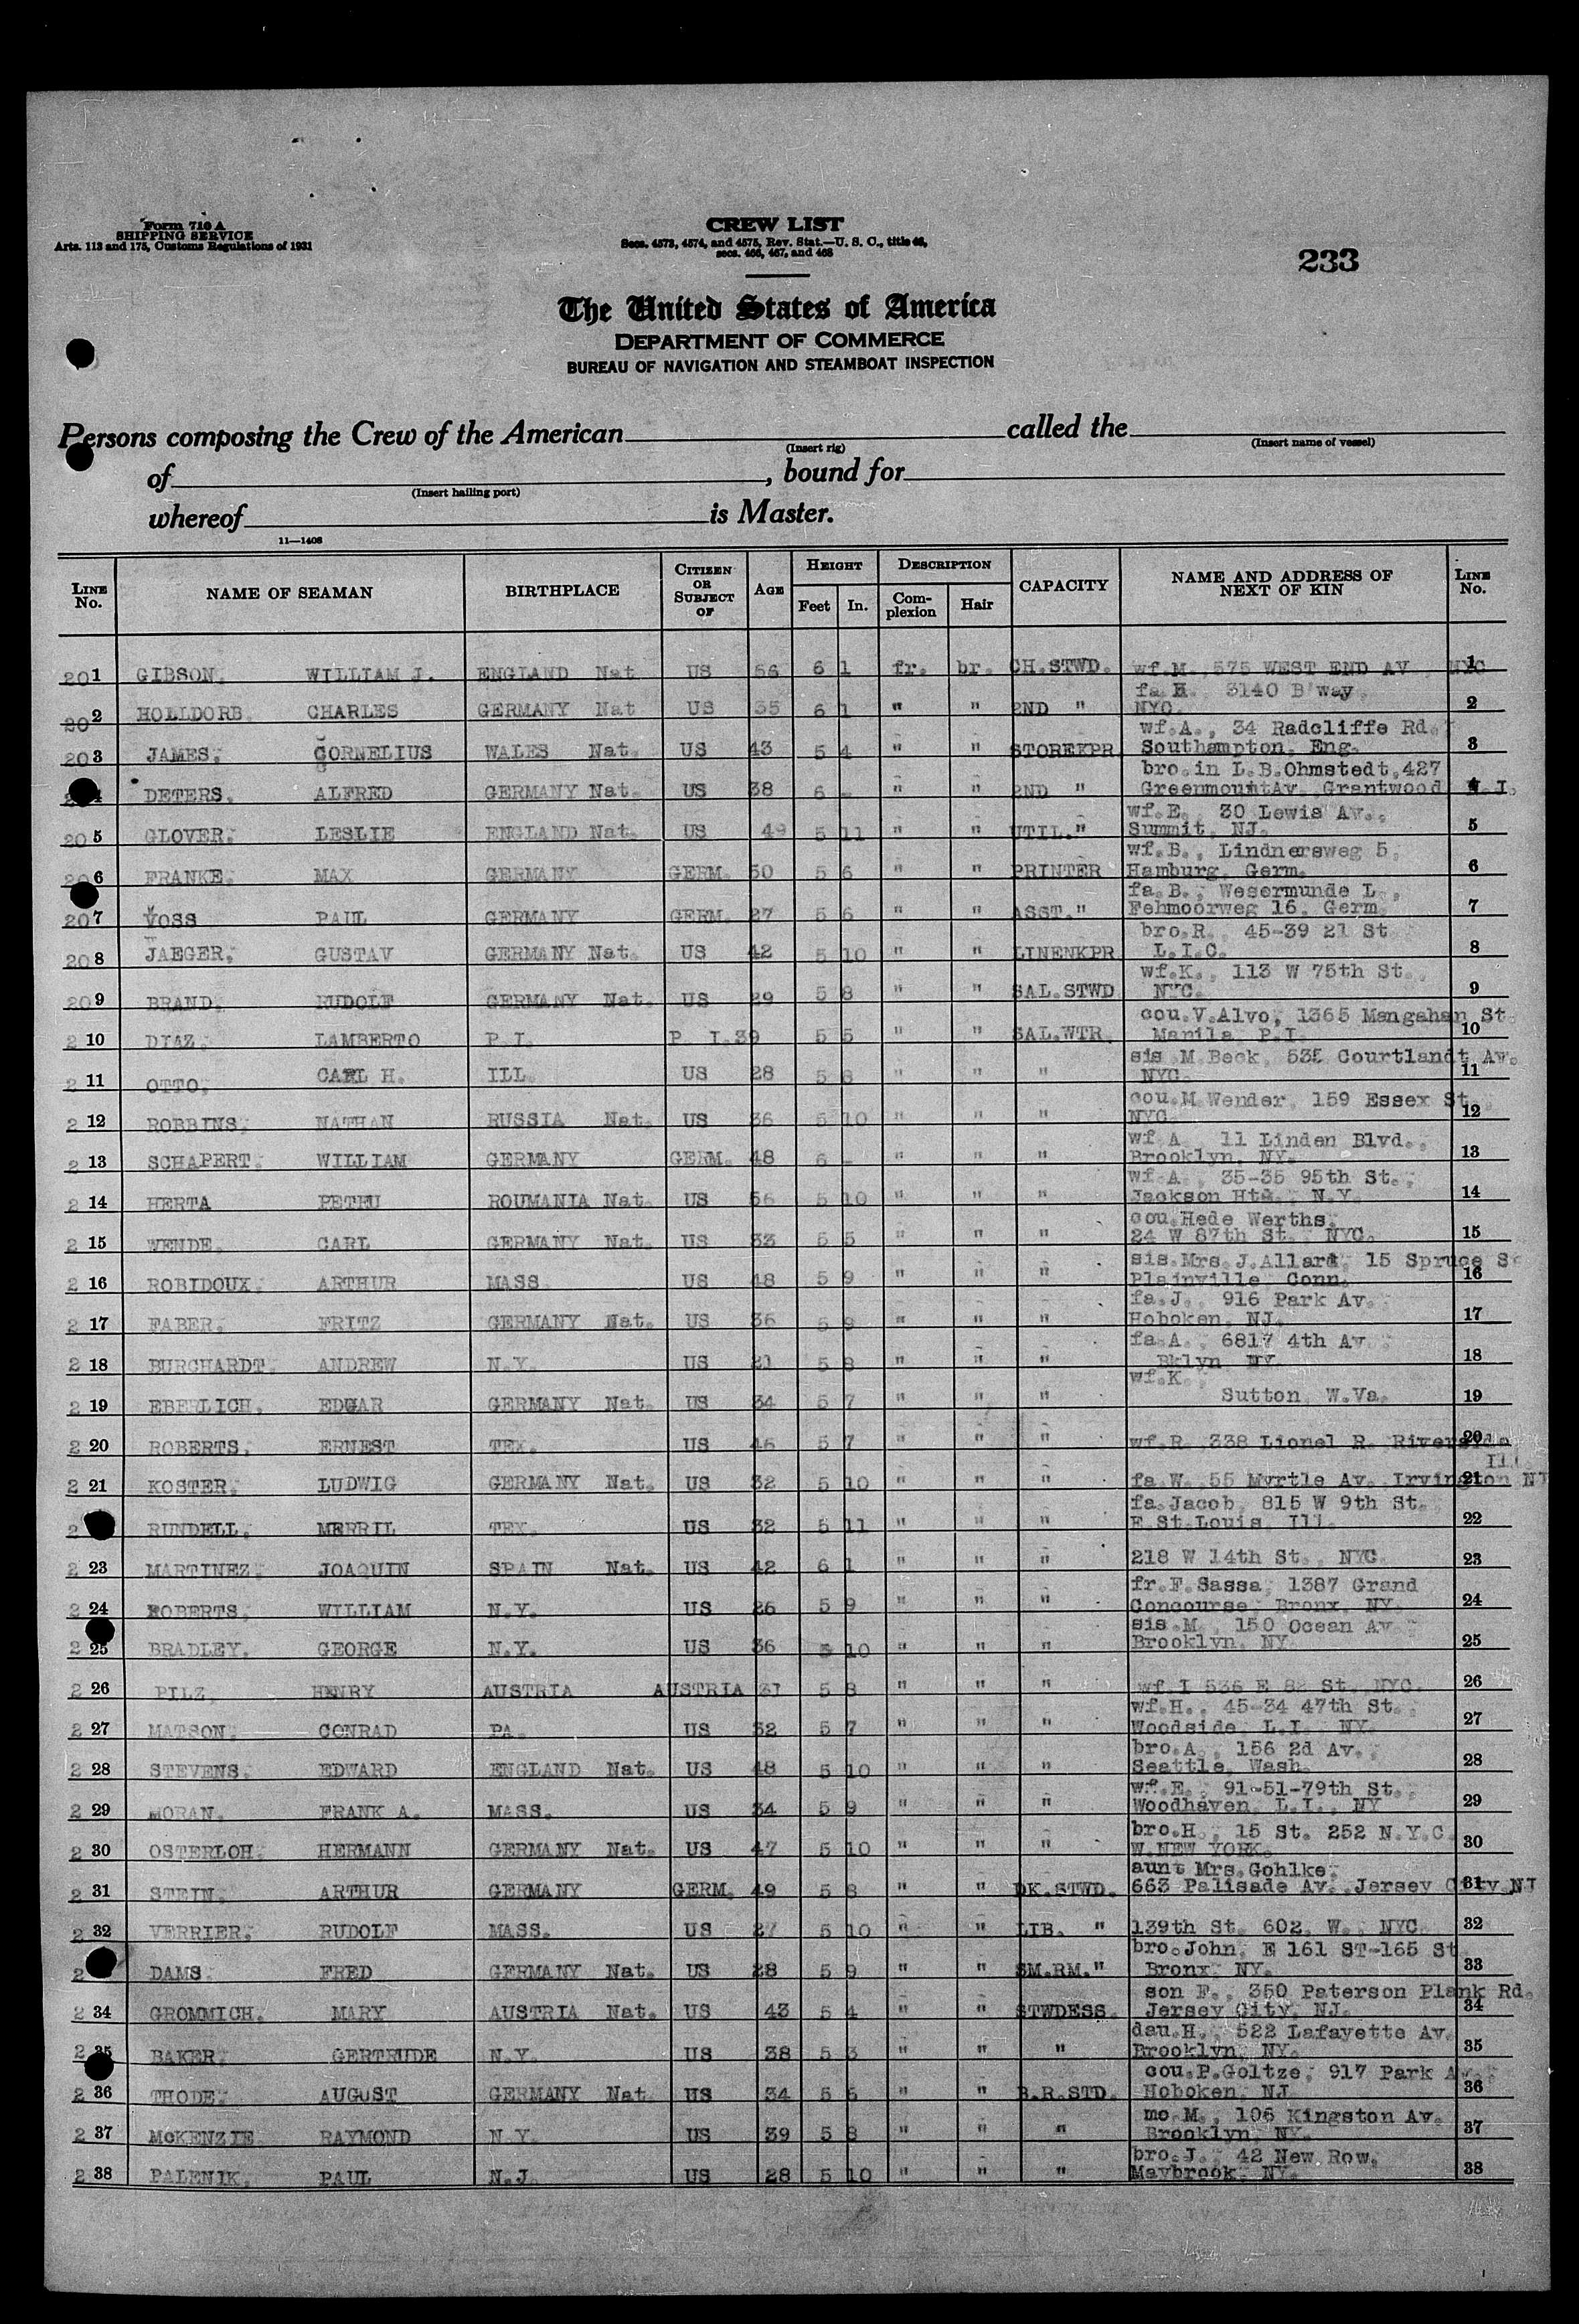 Form 710 A
SHIPPING SERVICE
Arts. 113 and 175, Customs Regulations of 1931
CREW LIST
Secs. 4573, 4574, and 4575, Rev. Stat.—U. S. C., title 46,
secs. 466, 467, and 468
233
The United States of America
DEPARTMENT OF COMMERCE
BUREAU OF NAVIGATION AND STEAMBOAT INSPECTION
Persons composing the Crew of the American called the
(Insert rig) (Insert name of vessel)
of , bound for
(Insert hailing port)
whereof is Master.
11—1408
LINE No. NAME OF SEAMAN BIRTHPLACE CITIZEN OR SUBJECT OF AGE HEIGHT Feet In. DESCRIPTION Complexion Hair CAPACITY NAME AND ADDRESS OF NEXT OF KIN LINE No.
201 GIBSON, WILLIAM J. ENGLAND Nat US 56 6 1 fr. br. CH.STWD. wf.M. 575 WEST END AV NYC 1
fa H. 3140 B'way,
202 HOLLDORB, CHARLES GERMANY Nat US 35 6 1 " " 2ND " NYC. 2
wf.A., 34 Radcliffe Rd.,
203 JAMES, CORNELIUS WALES Nat. US 43 5 4 " " STOREKPR Southampton, Eng. 3
bro.in L.B.Ohmstedt,427
4 DETERS, ALFRED GERMANY Nat. US 38 6 - " " 2ND " GreenmountAv. Grantwood N.J. 4
wf.E. 30 Lewis Av.,
205 GLOVER, LESLIE ENGLAND Nat. US 49 5 11 " " UTIL." Summit, NJ. 5
wf.B., Lindnersweg 5,
206 FRANKE, MAX GERMANY GERM. 50 5 6 " " PRINTER Hamburg, Germ. 6
fa.B., Wesermunde L.,
207 VOSS PAUL GERMANY GERM. 27 5 6 " " ASST." Fehmoorweg 16, Germ. 7
bro.R. 45-39 21 St
208 JAEGER, GUSTAV GERMANY Nat. US 42 5 10 " " LINENKPR L.I.C. 8
wf.K., 113 W 75th St.,
209 BRAND, RUDOLF GERMANY Nat. US 29 5 8 " " SAL.STWD NYC. 9
cou.V.Alvo, 1365 Mangahan St
2 10 DIAZ, LAMBERTO P.I. P. I. 39 5 5 " " SAL.WTR. Manila, P.I. 10
sis M.Beck, 535 Courtlandt Av.
2 11 OTTO, CARL H. ILL. US 28 5 8 " " " NYC. 11
cou.M.Wender, 159 Essex St
2 12 ROBBINS, NATHAN RUSSIA Nat. US 36 5 10 " " " NYC. 12
wf.A. 11 Linden Blvd.,
2 13 SCHAPERT, WILLIAM GERMANY GERM. 48 6 - " " " Brooklyn, NY. 13
wf.A., 35-35 95th St.,
2 14 HERTA PETRU ROUMANIA Nat. US 56 5 10 " " " Jackson Hts., N.Y. 14
cou.Hede Werths,
2 15 WENDE, CARL GERMANY Nat. US 33 5 5 " " " 24 W 87th St. NYC. 15
sis.Mrs.J.Allard, 15 Spruce S
2 16 ROBIDOUX, ARTHUR MASS. US 48 5 9 " " " Plainville Conn. 16
fa.J., 916 Park Av.
2 17 FABER, FRITZ GERMANY Nat. US 36 5 9 " " " Hoboken, NJ. 17
fa.A., 6817 4th Av.
2 18 BURCHARDT, ANDREW N.Y. US 21 5 8 " " " Bklyn NY. 18
wf.K.,
2 19 EBERLICH, EDGAR GERMANY Nat. US 34 5 7 " " " Sutton, W.Va. 19
2 20 ROBERTS, ERNEST TEX. US 46 5 7 " " " wf.R. 338 Lionel R. Riverside 20
Ill.
2 21 KOSTER, LUDWIG GERMANY Nat. US 32 5 10 " " " fa.W. 55 Myrtle Av. Irvington NJ 21
fa.Jacob, 815 W 9th St.,
2 RUNDELL, MERRIL TEX. US 32 5 11 " " " E.St.Louis, Ill. 22
2 23 MARTINEZ, JOAQUIN SPAIN Nat. US 42 6 1 " " " 218 W 14th St., NYC. 23
fr.F.Sassa, 1387 Grand
2 24 ROBERTS, WILLIAM N.Y. US 26 5 9 " " " Concourse, Bronx, NY. 24
sis.M. 150 Ocean Av.
2 25 BRADLEY, GEORGE N.Y. US 36 5 10 " " " Brooklyn, NY. 25
2 26 PILZ, HENRY AUSTRIA AUSTRIA 31 5 8 " " " wf.I 536 E 82 St. NYC. 26
wf.H., 45-34 47th St.,
2 27 MATSON, CONRAD PA. US 32 5 7 " " " Woodside, L.I. NY. 27
bro.A., 156 2d Av.,
2 28 STEVENS, EDWARD ENGLAND Nat. US 48 5 10 " " " Seattle, Wash. 28
wf.E., 91-51-79th St.,
2 29 MORAN, FRANK A. MASS. US 34 5 9 " " " Woodhaven, L.I., NY 29
bro.H., 15 St. 252 N.Y.C.
2 30 OSTERLOH, HERMANN GERMANY Nat. US 47 5 10 " " " W.NEW YORK. 30
aunt Mrs.Gohlke,
2 31 STEIN, ARTHUR GERMANY GERM. 49 5 8 " " DK.STWD. 663 Palisade Av. Jersey City NJ 31
2 32 VERRIER, RUDOLF MASS. US 27 5 10 " " LIB. " 139th St. 602, W., NYC. 32
bro.John, E 161 ST-165 St
2 DAMS FRED GERMANY Nat. US 28 5 9 " " SM.RM." Bronx, NY. 33
son F., 350 Paterson Plank Rd.
2 34 GROMMICH, MARY AUSTRIA Nat. US 43 5 4 " " STWDESS. Jersey City, NJ. 34
dau.H., 522 Lafayette Av.
2 35 BAKER, GERTRUDE N.Y. US 38 5 3 " " " Brooklyn, NY. 35
cou.P.Goltze, 917 Park Av.
2 36 THODE, AUGUST GERMANY Nat. US 34 5 6 " " B.R.STD. Hoboken, NJ 36
mo.M., 106 Kingston Av.
2 37 McKENZIE RAYMOND N.Y. US 39 5 8 " " " Brooklyn, NY. 37
bro.J., 42 New Row,
2 38 PALENIK, PAUL N.J. US 28 5 10 " " " Maybrook, NY. 38